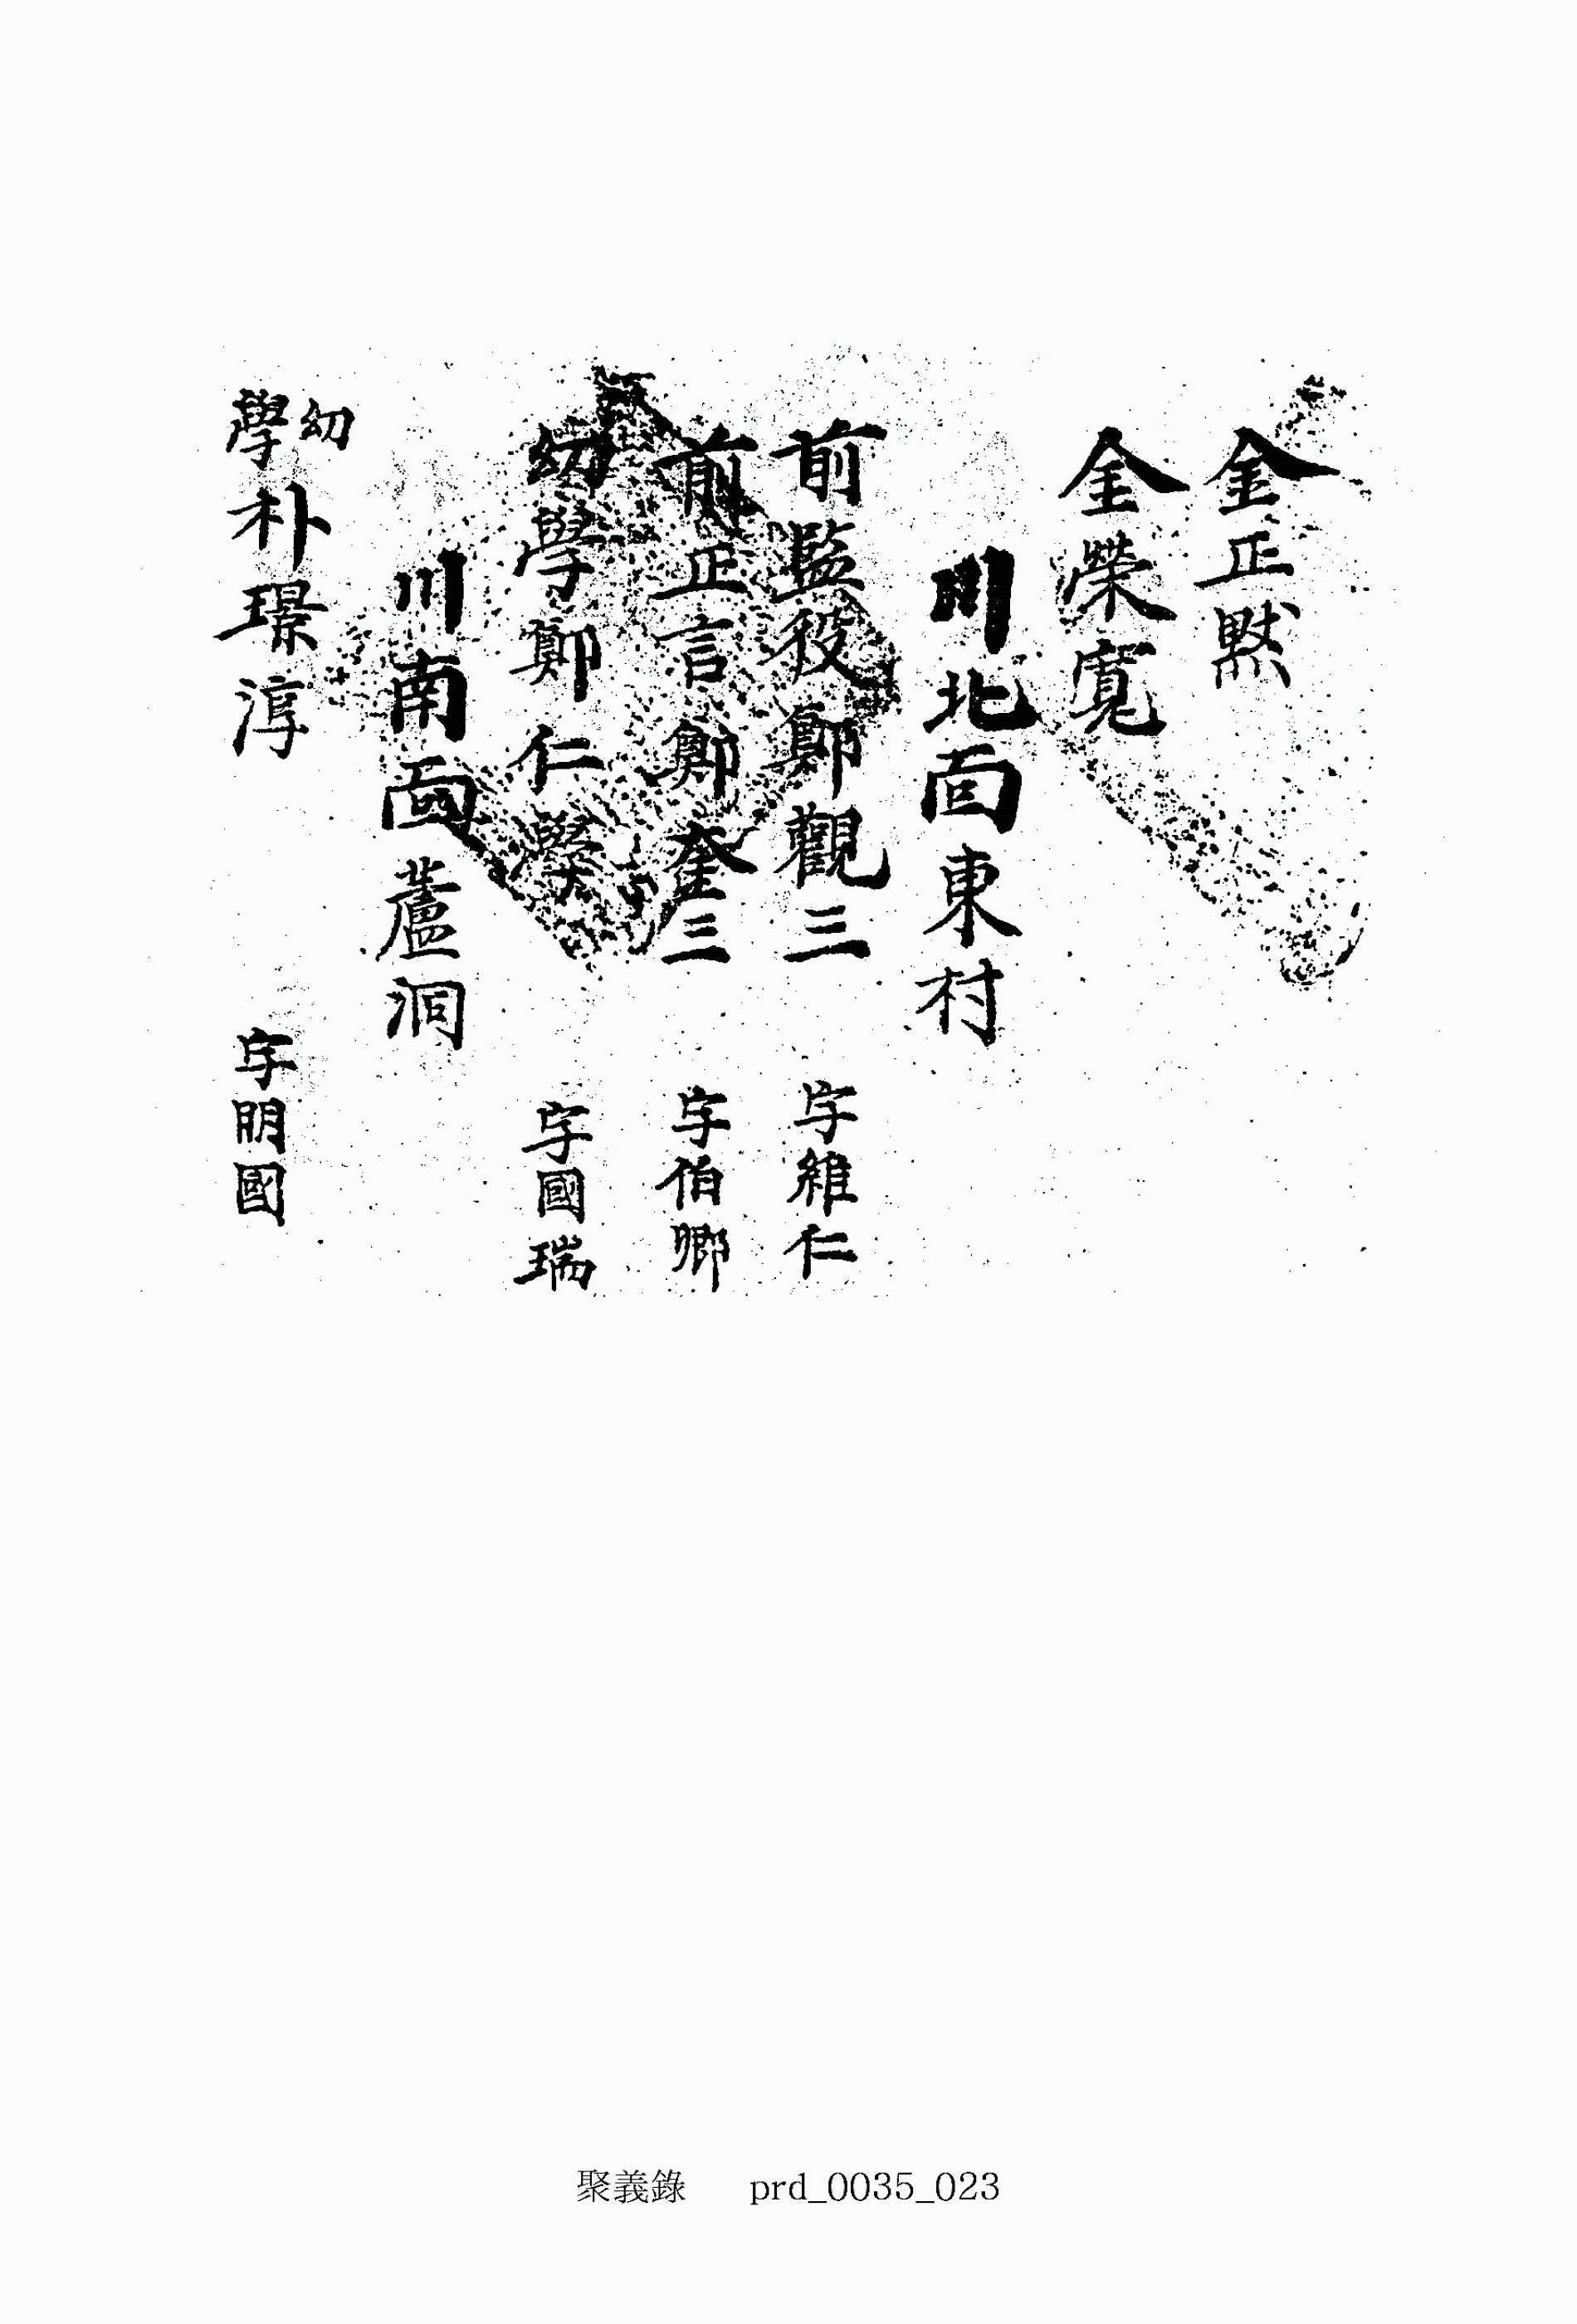 金正默
金榮寬
川北面東村
前監役鄭觀三 字維仁
前正言鄭奎三 字伯卿
幼學鄭仁 字國瑞
川南面蘆洞
幼學朴璟淳 字明國
聚義錄 prd_0035_023